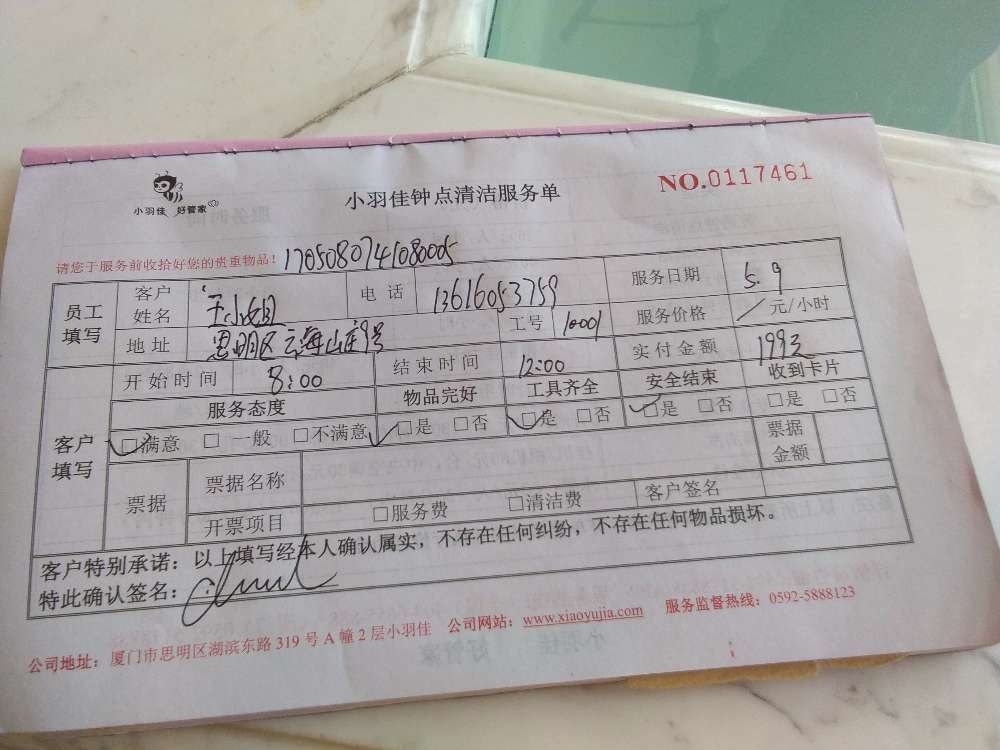 小羽佳 好管家
小羽佳钟点清洁服务单
NO.0117461
请您于服务前收拾好您的贵重物品！
员工填写 客户姓名 王小姐 电话 13616053759 服务日期 5.9
地址 思明区云海山庄 号 工号 10001 服务价格 / 元/小时
客户填写 开始时间 8:00 结束时间 12:00 实付金额 199元
服务态度 物品完好 工具齐全 安全结束 收到卡片
□满意 □一般 □不满意 □是 □否 □是 □否 □是 □否 □是 □否
票据 票据名称 票据金额
开票项目 □服务费 □清洁费 客户签名
客户特别承诺：以上填写经本人确认属实，不存在任何纠纷，不存在任何物品损坏。
特此确认签名：
公司地址：厦门市思明区湖滨东路319号A幢2层小羽佳 公司网站：www.xiaoyujia.com 服务监督热线：0592-5888123